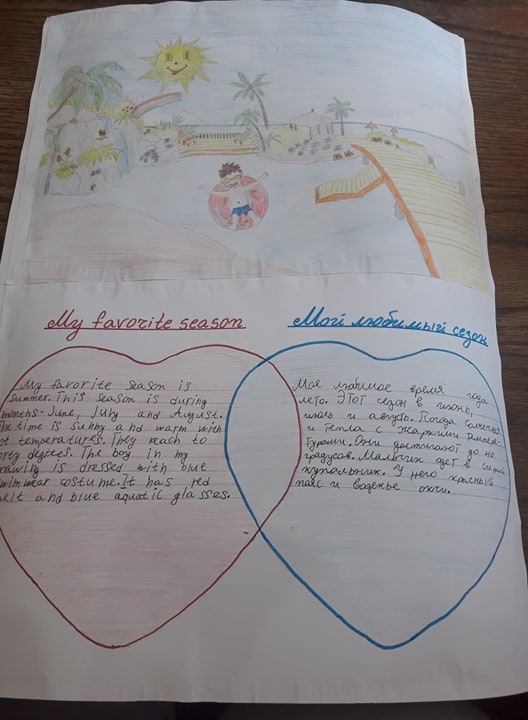 My favorite season
My favorite season is
Summer. This season is during
months- June, July and August.
The time is sunny and warm with
hot temperatures. They reach to
forty degrees. The boy in my
drawing is dressed with blue
swimwear costume. It has red
belt and blue aquatic glasses.
Мой любимый сезон
Мое любимое время года
лето. Этот сезон в июнь,
июль и август. Погода
и тепла с жаркими
Они достигают до
градусов. Мальчик одет в
купальник. У него красный
пояс и воденье очки.